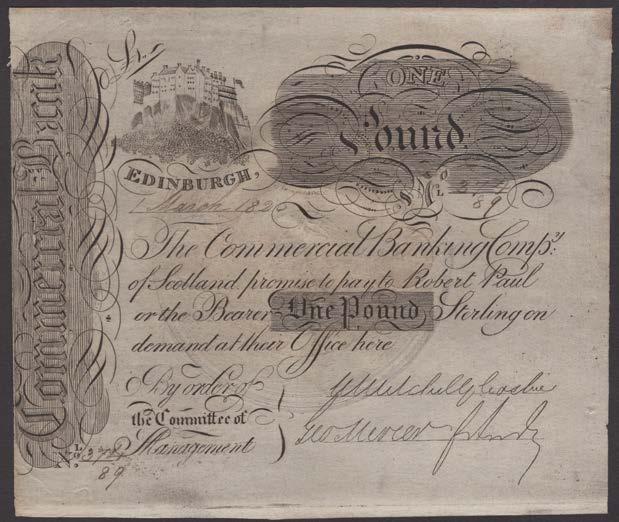 Commercial Bank
ONE
Pound.
EDINBURGH,
1 March 182
No
89
The Commercial Banking Compy:
of Scotland promise to pay to Robert Paul
or the Bearer One Pound Sterling on
demand at their Office here
By order of
the Committee of
Management
Geo Mercer
No
89